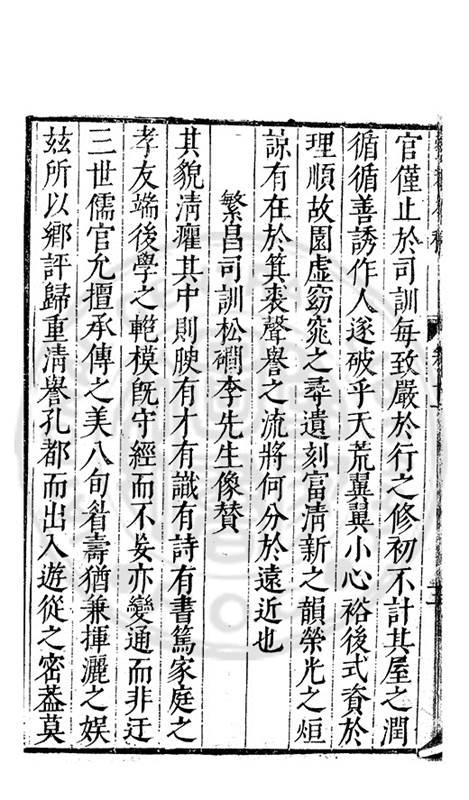 官僅止於司訓每致嚴於行之修初不計其屋之潤
循循善誘作人遂破乎天荒翼翼小心裕後式資於
理順故園虛窈窕之尋遺刻富清新之韻榮光之烜
諒有在於箕裘聲譽之流將何分於遠近也
繁昌司訓松磵李先生像贊
其貌清癯其中則腴有才有識有詩有書篤家庭之
孝友端後學之範模旣守經而不妄亦變通而非迂
三世儒官允擅承傳之美八旬眉壽猶兼揮灑之娛
玆所以鄉評歸重清譽孔都而出入遊從之密葢莫